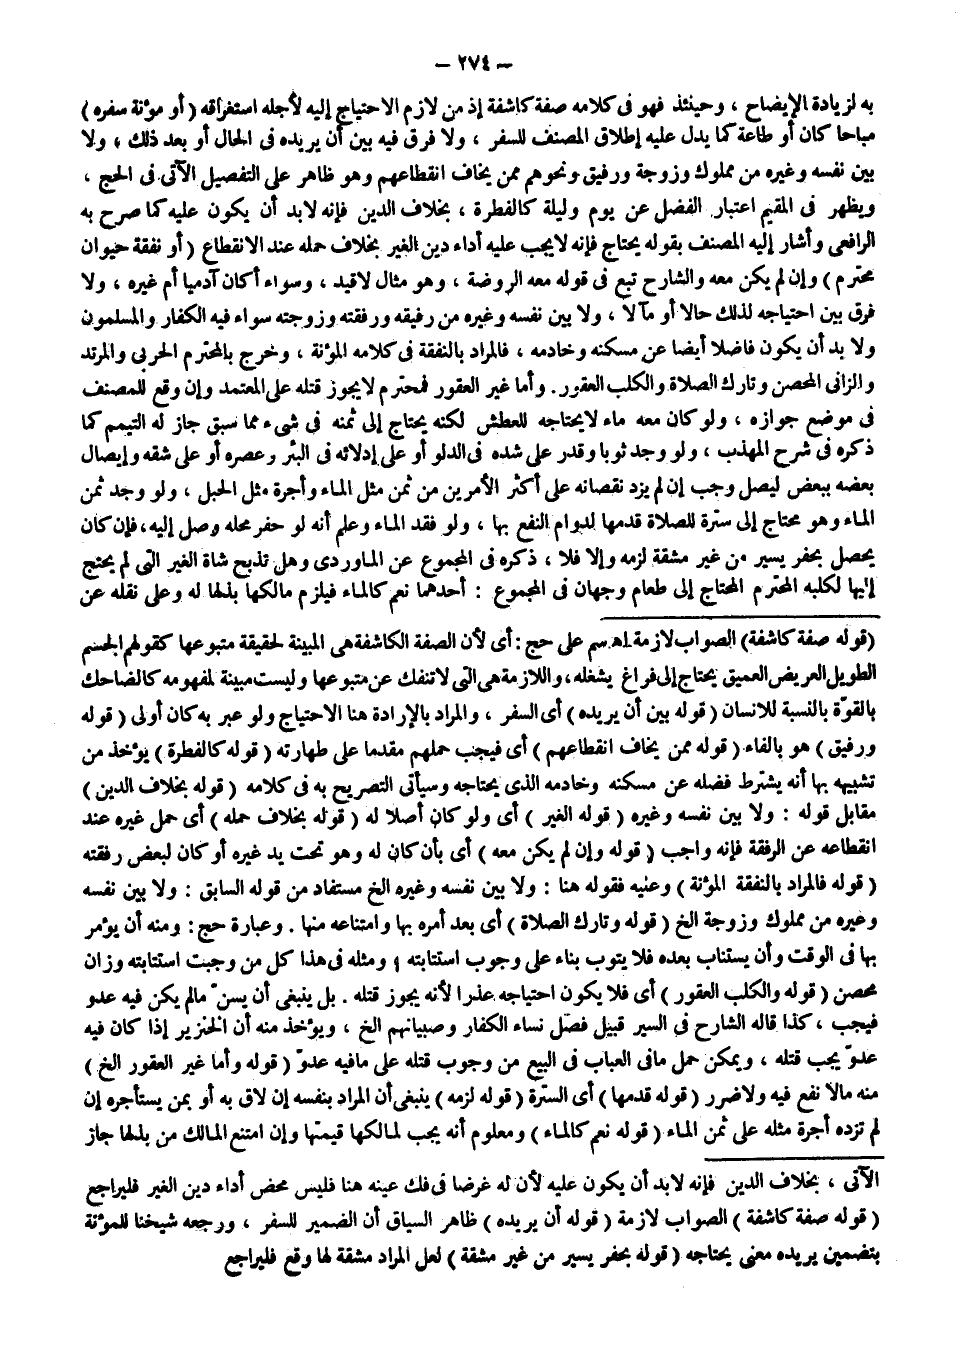 – ٢٧٤ –
به لزيادة الإيضاح ، وحينئذ فهو فى كلامه صفة كاشفة إذ من لازم الاحتياج إليه لأجله استغراقه ( أو مؤنة سفره )
مباحا كان أو طاعة كما يدل عليه إطلاق المصنف للسفر ، ولا فرق فيه بين أن يريده فى الحال أو بعد ذلك ، ولا
بين نفسه وغيره من مملوك وزوجة ورفيق ونحوهم ممن يخاف انقطاعهم وهو ظاهر على التفصيل الآتى فى الحج ،
ويظهر فى المقيم اعتبار الفضل عن يوم وليلة كالفطرة ، بخلاف الدين فإنه لابد أن يكون عليه كما صرح به
الرافعى وأشار إليه المصنف بقوله يحتاج فإنه لايجب عليه أداء دين الغير بخلاف حمله عند الانقطاع ( أو نفقة حيوان
محترم ) وإن لم يكن معه والشارح تبع فى قوله معه الروضة ، وهو مثال لاقيد ، وسواء أكان آدميا أم غيره ، ولا
فرق بين احتياجه لذلك حالا أو مآلا ، ولا بين نفسه وغيره من رفيقه ورفقته وزوجته سواء فيه الكفار والمسلمون
ولا بد أن يكون فاضلا أيضا عن مسكنه وخادمه ، فالمراد بالنفقة فى كلامه المؤنة ، وخرج بالمحترم الحربى والمرتد
والزانى المحصن وتارك الصلاة والكلب العقور . وأما غير العقور فمحترم لايجوز قتله على المعتمد وإن وقع للمصنف
فى موضع جوازه ، ولو كان معه ماء لايحتاجه للعطش لكنه يحتاج إلى ثمنه فى شىء مما سبق جاز له التيمم كما
ذكره فى شرح المهذب ، ولو وجد ثوبا وقدر على شده فى الدلو أو على إدلائه فى البئر وعصره أو على شقه وإيصال
بعضه ببعض ليصل وجب إن لم يزد نقصانه على أكثر الأمرين من ثمن مثل الماء وأجرة مثل الحبل ، ولو وجد ثمن
الماء وهو محتاج إلى سترة للصلاة قدمها لدوام النفع بها ، ولو فقد الماء وعلم أنه لو حفر محله وصل إليه ، فإن كان
يحصل بحفر يسير من غير مشقة لزمه وإلا فلا ، ذكره فى المجموع عن الماوردى وهل تذبح شاة الغير التى لم يحتج
إليها لكلبه المحترم المحتاج إلى طعام وجهان فى المجموع : أحدهما نعم كالماء فيلزم مالكها بذلها له وعلى نقله عن
(قوله صفة كاشفة) الصواب لازمة اهـ سم على حج : أى لأن الصفة الكاشفة هى المبينة لحقيقة متبوعها كقولهم الجسم
الطويل العريض العميق يحتاج إلى فراغ يشغله ، واللازمة هى التى لاتنفك عن متبوعها وليست مبينة لمفهومه كالضاحك
بالقوّة بالنسبة للانسان ( قوله بين أن يريده ) أى السفر ، والمراد بالإرادة هنا الاحتياج ولو عبر به كان أولى ( قوله
ورفيق ) هو بالفاء ( قوله ممن يخاف انقطاعهم ) أى فيجب حملهم مقدما على طهارته ( قوله كالفطرة ) يؤخذ من
تشبيهه بها أنه يشترط فضله عن مسكنه وخادمه الذى يحتاجه وسيأتى التصريح به فى كلامه ( قوله بخلاف الدين )
مقابل قوله : ولا بين نفسه وغيره ( قوله الغير ) أى ولو كان أصلا له ( قوله بخلاف حمله ) أى حمل غيره عند
انقطاعه عن الرفقة فإنه واجب ( قوله وإن لم يكن معه ) أى بأن كان له وهو تحت يد غيره أو كان لبعض رفقته
( قوله فالمراد بالنفقة المؤنة ) وعليه فقوله هنا : ولا بين نفسه وغيره الخ مستفاد من قوله السابق : ولا بين نفسه
وغيره من مملوك وزوجة الخ ( قوله وتارك الصلاة ) أى بعد أمره بها وامتناعه منها . وعبارة حج : ومنه أن يؤمر
بها فى الوقت وأن يستتاب بعده فلا يتوب بناء على وجوب استتابته ، ومثله فى هذا كل من وجبت استتابته وزان
محصن ( قوله والكلب العقور ) أى فلا يكون احتياجه عذرا لأنه يجوز قتله . بل ينبغى أن يسنّ مالم يكن فيه عدو
فيجب ، كذا قاله الشارح فى السير قبيل فصل نساء الكفار وصبيانهم الخ ، ويؤخذ منه أن الخنزير إذا كان فيه
عدوّ يجب قتله ، ويمكن حمل مافى العباب فى البيع من وجوب قتله على مافيه عدوّ ( قوله وأما غير العقور الخ )
منه مالا نفع فيه ولاضرر ( قوله قدمها ) أى السترة ( قوله لزمه ) ينبغى أن المراد بنفسه إن لاق به أو بمن يستأجره إن
لم تزده أجرة مثله على ثمن الماء ( قوله نعم كالماء ) ومعلوم أنه يجب لمالكها قيمتها وإن امتنع المالك من بذلها جاز
الآتى ، بخلاف الدين فإنه لابد أن يكون عليه لأن له غرضا فى فك عينه هنا فليس محض أداء دين الغير فليراجع
( قوله صفة كاشفة ) الصواب لازمة ( قوله أن يريده ) ظاهر السياق أن الضمير للسفر ، ورجعه شيخنا للمؤنة
بتضمين يريده معنى يحتاجه ( قوله بحفر يسير من غير مشقة ) لعل المراد مشقة لها وقع فليراجع